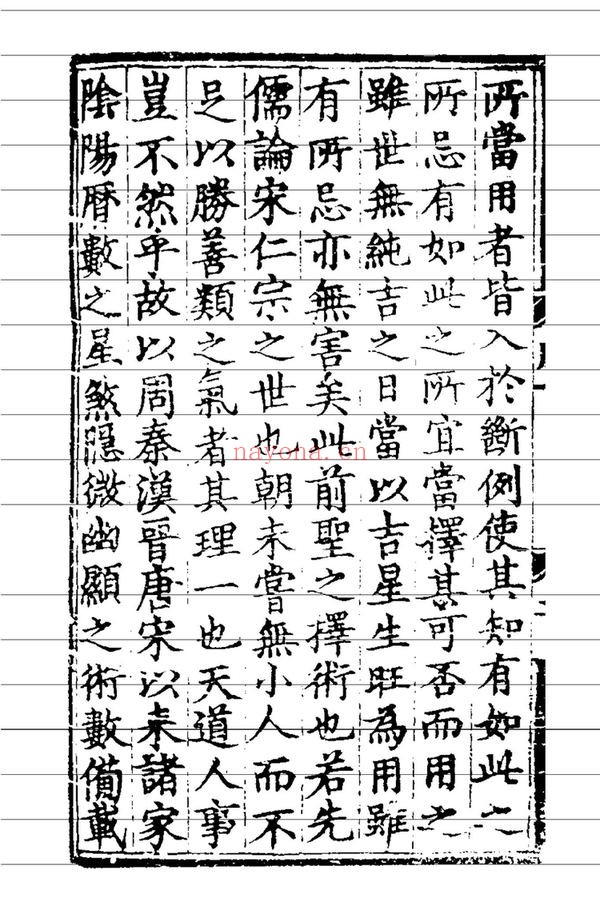 所當用者皆入於斷例使其知有如此之
所忌有如此之所宜當擇其可否而用之
雖世無純吉之日當以吉星生旺為用雖
有所忌亦無害矣此前聖之擇術也若先
儒論宋仁宗之世也朝未嘗無小人而不
足以勝善類之氣者其理一也天道人事
豈不然乎故以周秦漢晉唐宋以来諸家
陰陽曆數之星煞隱微幽顯之術數備載
nayona.cn